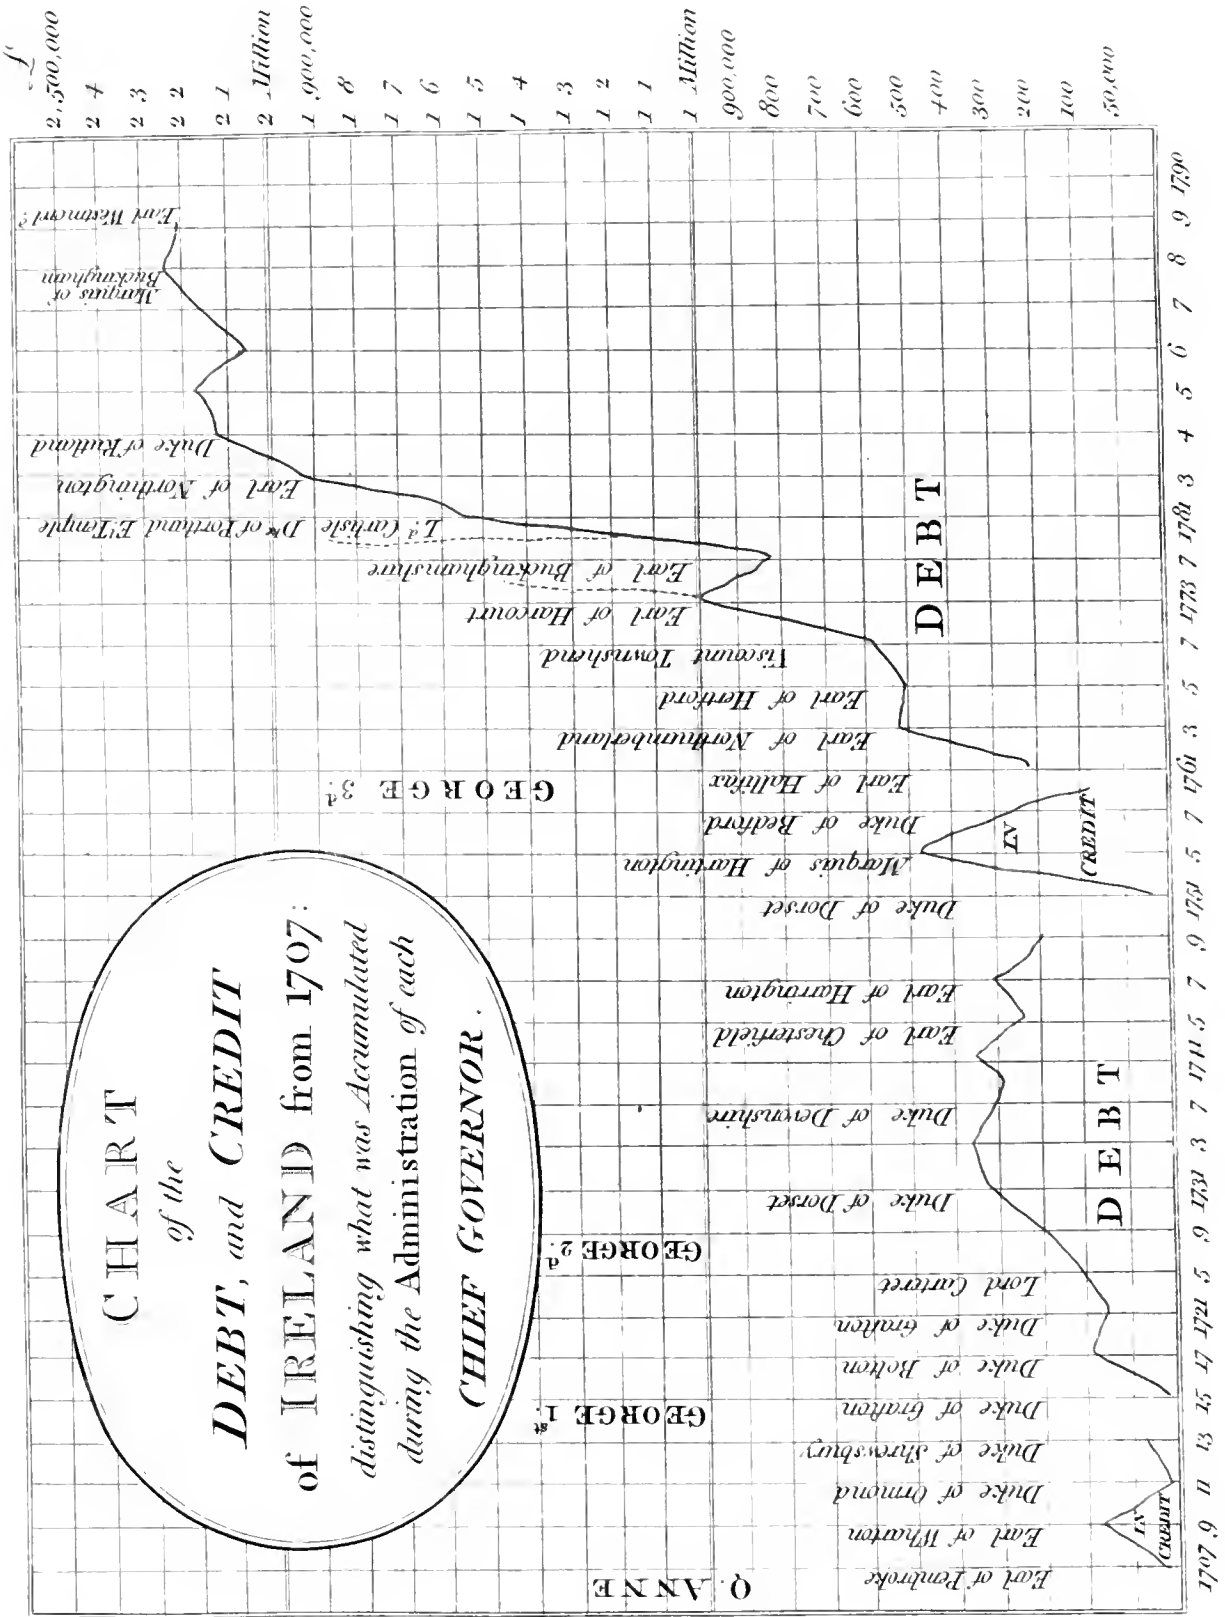 CHART
of the
DEBT, and CREDIT
of IRELAND from 1707:
distinguishing what was Accumulated
during the Administration of each
CHIEF GOVERNOR.
£
2,500,000
2 4
2 3
2 2
2 1
2 Million
1,900,000
1 8
1 7
1 6
1 5
1 4
1 3
1 2
1 1
1 Million
900,000
800
700
600
500
400
300
200
100
50,000
Q. ANNE
GEORGE 1st.
GEORGE 2d.
GEORGE 3d.
Earl of Pembroke
Earl of Wharton
Duke of Ormond
Duke of Shrewsbury
Duke of Grafton
Duke of Bolton
Duke of Grafton
Lord Carteret
Duke of Dorset
Duke of Devonshire
Earl of Chesterfield
Earl of Harrington
Duke of Dorset
Marquis of Hartington
Duke of Bedford
Earl of Hallifax
Earl of Northumberland
Earl of Hertford
Viscount Townshend
Earl of Harcourt
Earl of Buckinghamshire
Ld. Carlisle Dke of Portland El Temple
Earl of Northington
Duke of Rutland
Marquis of
Buckingham
Earl Westmorld
IN
CREDIT
DEBT
IN
CREDIT
DEBT
1707
9
11
13
15
17
1721
5
9
1731
3
7
1741
5
7
9
1751
5
7
1761
3
5
7
1773
7
1781
3
4
5
6
7
8
9
1790